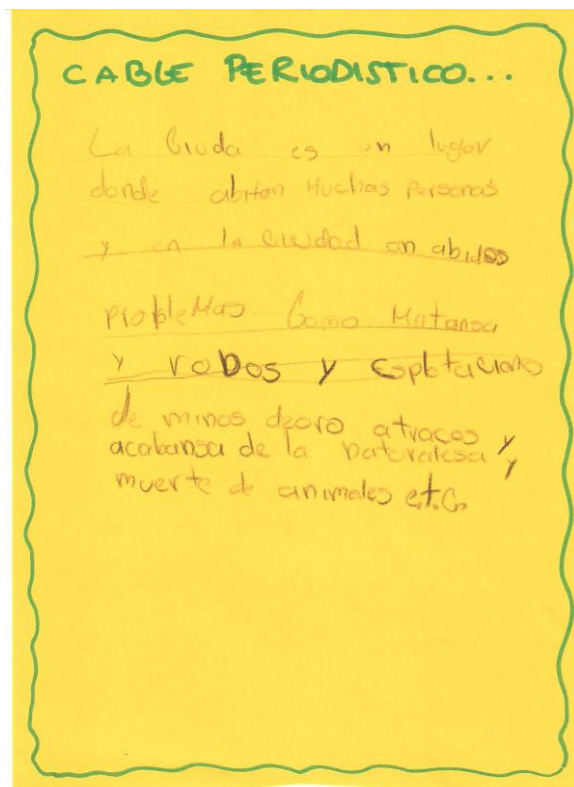 CABLE PERIODISTICO...
La Ciuda es un lugar
donde abitan Muchas Personas
y en la Ciudad an abidos
problemas Como Matansa
y robos y Esplotaciones
de minas deoro atracos y
acabansa de la naturalesa y
muerte de animales e.t.c.